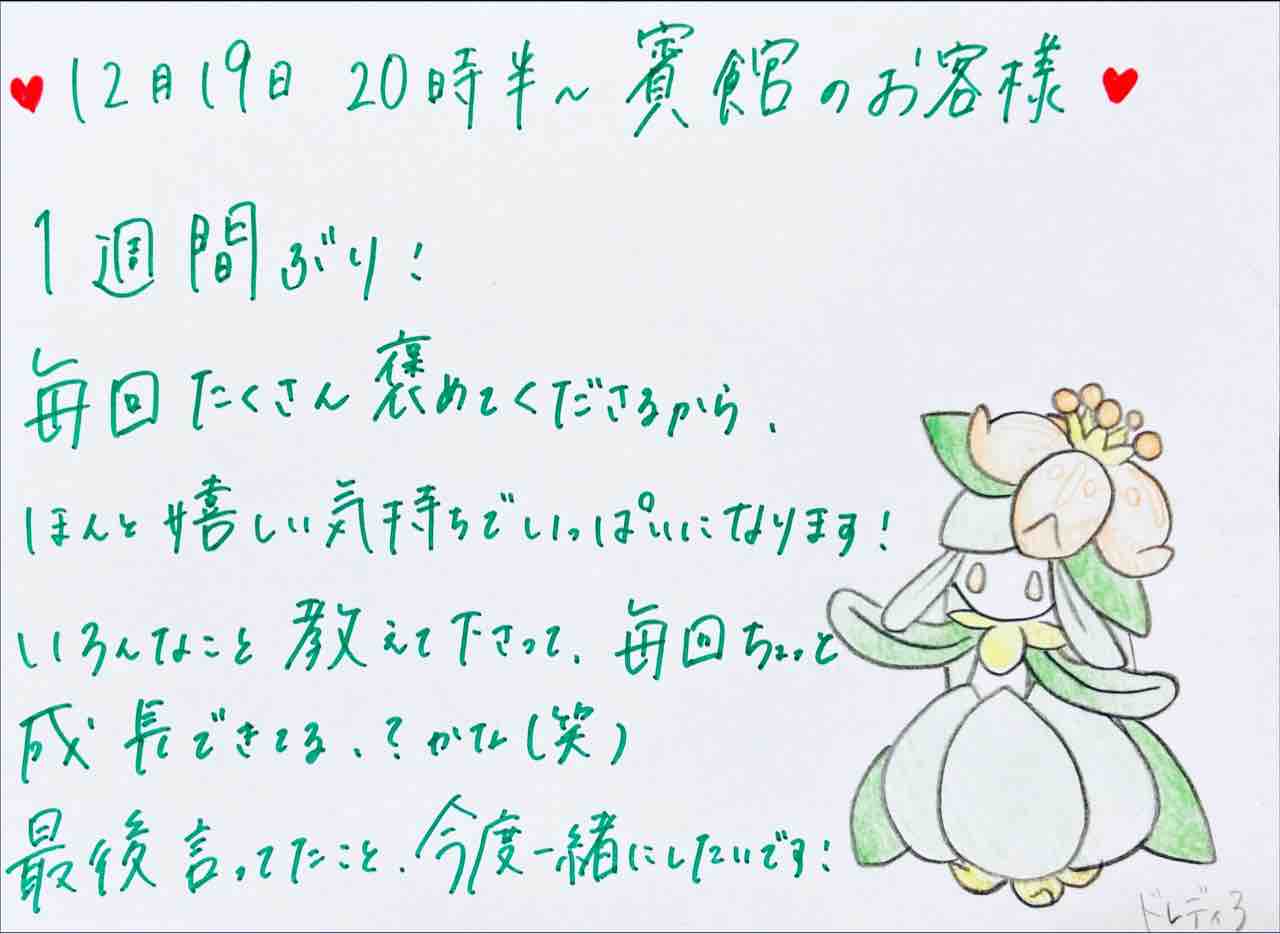 ♥12月19日 20時半〜賓館のお客様♥
1週間ぶり!
毎回たくさん褒めてくださるから、
ほんと嬉しい気持ちでいっぱいになります!
いろんなこと教えて下さって、毎回ちょっと
成長できてる、?かな(笑)
最後言ってたこと、今度一緒にしたいです!
ドレディア3